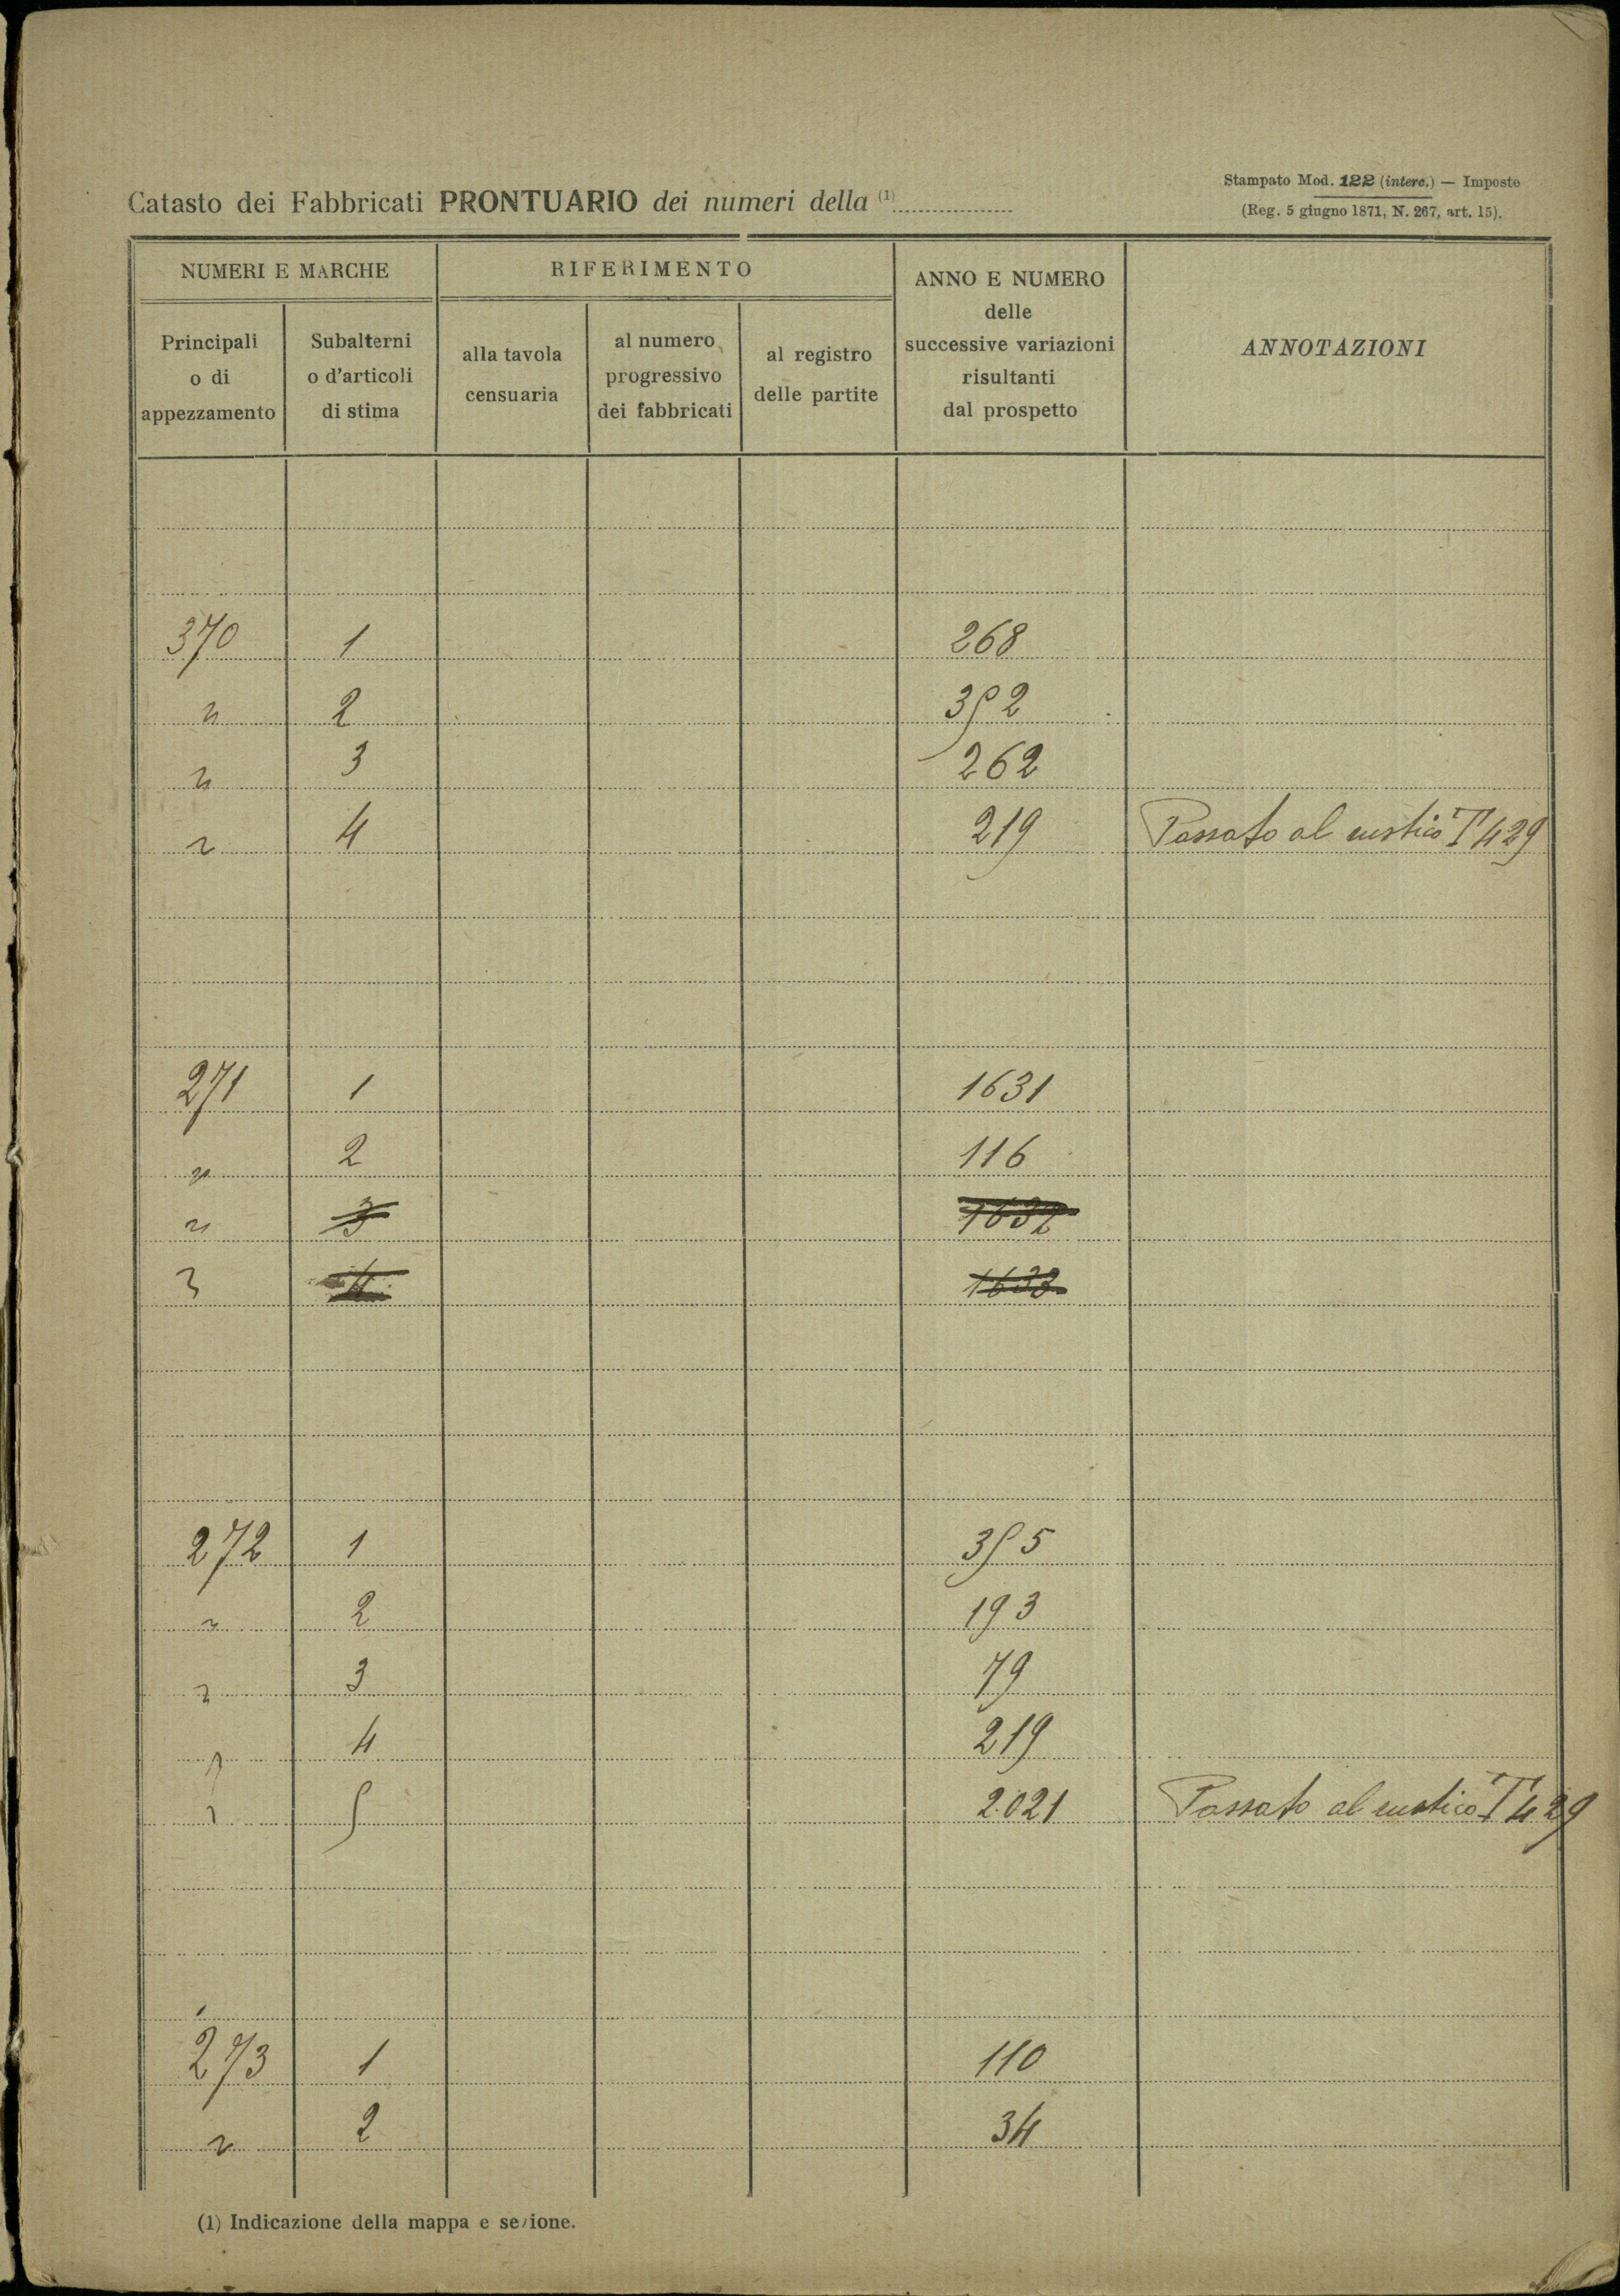 Catasto dei Fabbricati PRONTUARIO dei numeri della (1)
Stampato Mod. 122 (interc.) — Imposte
(Reg. 5 giugno 1871, N. 267, art. 15).
NUMERI E MARCHE
RIFERIMENTO
ANNO E NUMERO
delle
successive variazioni
risultanti
dal prospetto
ANNOTAZIONI
Principali
o di
appezzamento
Subalterni
o d'articoli
di stima
alla tavola
censuaria
al numero
progressivo
dei fabbricati
al registro
delle partite
370 1 268
" 2 352
" 3 262
" 4 219 Passato al rustico T 429
271 1 1631
" 2 116
" 3 1632
" 4 1633
272 1 355
" 2 193
" 3 79
" 4 219
" 5 2021 Passato al rustico T 429
273 1 110
" 2 34
(1) Indicazione della mappa e sezione.